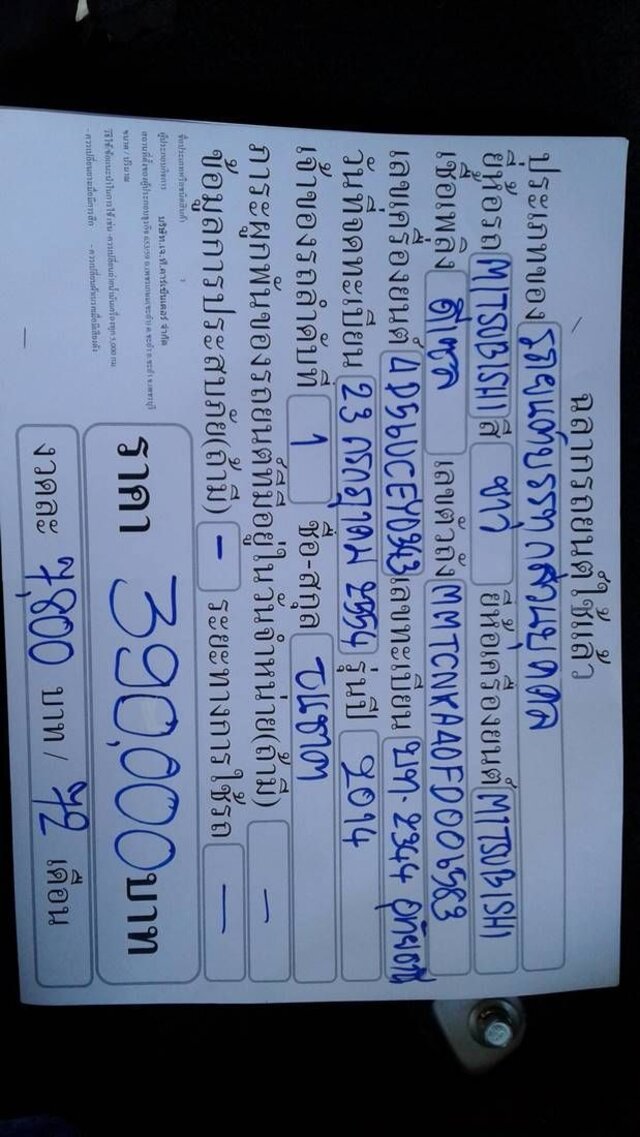 ฉลากรถยนต์ใช้แล้ว
ประเภทของ รถยนต์บรรทุกส่วนบุคคล
ยี่ห้อรถ MITSUBISHI สี ขาว ยี่ห้อเครื่องยนต์ MITSUBISHI
เชื้อเพลิง ดีเซล เลขตัวถัง MMTCNKA40FD006583
เลขเครื่องยนต์ 4D56UCEY0343 เลขทะเบียน 2344
วันที่จดทะเบียน 23 กรกฎาคม รุ่นปี 2014
เจ้าของรถลำดับที่ 1 ชื่อ-สกุล
ภาระผูกพันของรถยนต์ที่มีอยู่ในวันจำหน่าย(ถ้ามี) –
ข้อมูลการประสบภัย(ถ้ามี) – ระยะทางการใช้รถ –
ราคา 390,000 บาท
งวดละ 7,800 บาท / 72 เดือน
ผู้ประกอบกิจการ บริษัท.เจ.ที.คาร์เซ็นเตอร์ จำกัด
ขนาด / ปริมาณ